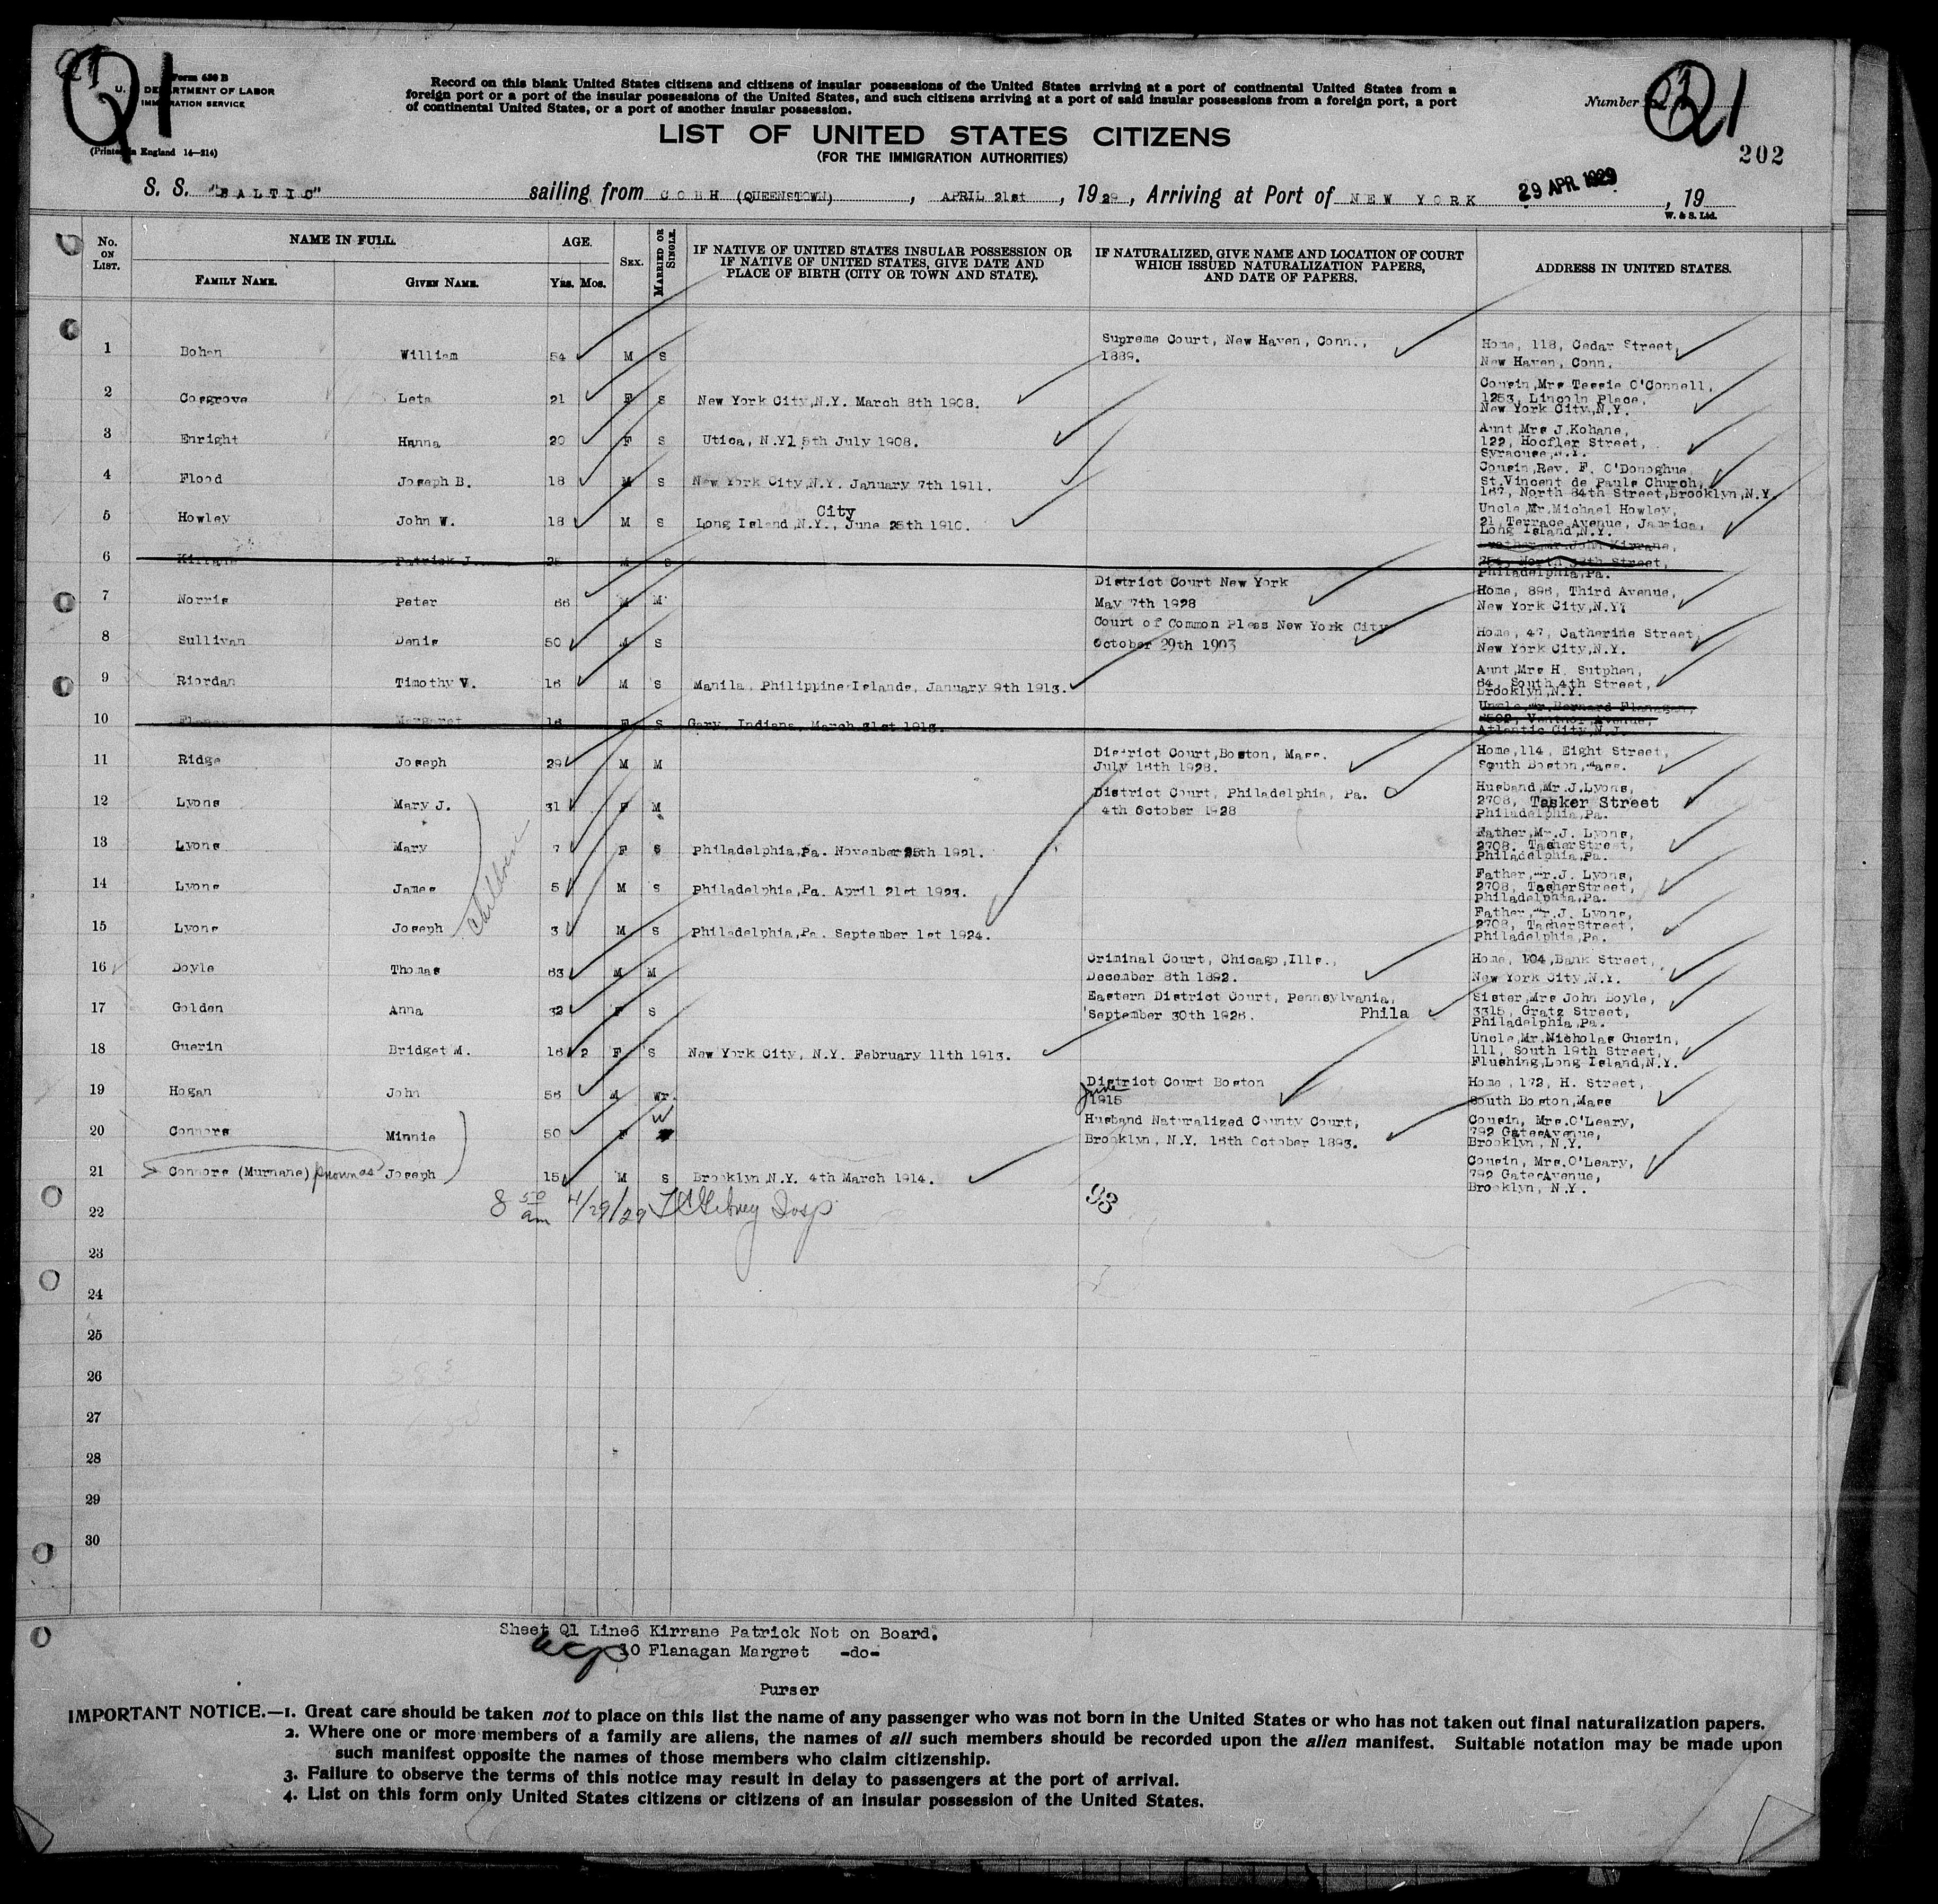 Q1
Form 630 B
U. S. DEPARTMENT OF LABOR
IMMIGRATION SERVICE
(Printed in England 14—214)
Record on this blank United States citizens and citizens of insular possessions of the United States arriving at a port of continental United States from a
foreign port or a port of the insular possessions of the United States, and such citizens arriving at a port of said insular possessions from a foreign port, a port
of continental United States, or a port of another insular possession.
Number Q1
202
LIST OF UNITED STATES CITIZENS
(FOR THE IMMIGRATION AUTHORITIES)
S. S. "BALTIC" sailing from COBH (QUEENSTOWN), APRIL 21st, 1929, Arriving at Port of NEW YORK 29 APR. 1929, 19
W. & S. Ltd.
No. ON LIST. NAME IN FULL. FAMILY NAME. GIVEN NAME. AGE. Yrs. Mos. SEX. MARRIED OR SINGLE.
IF NATIVE OF UNITED STATES INSULAR POSSESSION OR
IF NATIVE OF UNITED STATES, GIVE DATE AND
PLACE OF BIRTH (CITY OR TOWN AND STATE).
IF NATURALIZED, GIVE NAME AND LOCATION OF COURT
WHICH ISSUED NATURALIZATION PAPERS,
AND DATE OF PAPERS.
ADDRESS IN UNITED STATES.
1 Bohan William 54 M S Supreme Court, New Haven, Conn.,
1889.
Home, 118, Cedar Street,
New Haven, Conn.
2 Cosgrove Leta 21 F S New York City,N.Y. March 8th 1908.
Cousin,Mrs Tessie O'Connell,
1253, Lincoln Place,
New York City,N.Y.
3 Enright Hanna 20 F S Utica, N.Y15th July 1908.
Aunt Mrs J.Kohane,
122, Hoefler Street,
Syracuse,N.Y.
4 Flood Joseph B. 18 M S New York City,N.Y. January 7th 1911.
Cousin,Rev. F. O'Donoghue,
St.Vincent de Pauls Church,
167, North 84th Street,Brooklyn,N.Y.
5 Howley John W. 18 M S Long Island City,N.Y., June 25th 1910.
Uncle,Mr.Michael Howley,
21, Terrace Avenue, Jamaica,
Long Island,N.Y.
6 Kirrane Patrick J. 25 M S
Brother,Mr.John Kirrane,
North Street,
Philadelphia,Pa.
7 Norris Peter 66 M M District Court New York
May 7th 1928
Home, 896, Third Avenue,
New York City,N.Y.
8 Sullivan Denis 50 M S Court of Common Pleas New York City
October 29th 1903
Home, 47, Catherine Street,
New York City,N.Y.
9 Riordan Timothy V. 16 M S Manila, Philippine Islands, January 9th 1913.
Aunt,Mrs H. Sutphen,
64, South 4th Street,
Brooklyn,N.Y.
10 Flanagan Margaret 16 F S Gary, Indiana, March 31st 1913.
Uncle,Mr.Bernard Flanagan,
Ventnor Avenue,
Atlantic City,N.J.
11 Ridge Joseph 29 M M District Court,Boston, Mass.
July 16th 1928.
Home,114, Eight Street,
South Boston,Mass.
12 Lyons Mary J. 31 F M District Court, Philadelphia, Pa.
4th October 1928
Husband,Mr.J.Lyons,
2708, Tasker Street
Philadelphia,Pa.
13 Lyons Mary 7 F S Philadelphia,Pa. November 25th 1921.
Father,Mr.J. Lyons,
2708. TasherStreet,
Philadelphia,Pa.
children
14 Lyons James 5 M S Philadelphia,Pa. April 21st 1923.
Father,Mr.J. Lyons,
2708, TasherStreet,
Philadelphia,Pa.
15 Lyons Joseph 3 M S Philadelphia,Pa. September 1st 1924.
Father,Mr.J. Lyons,
2708, TasherStreet,
Philadelphia,Pa.
16 Doyle Thomas 63 M M Criminal Court, Chicago,Ills.,
December 8th 1892.
Home, 104, Bank Street,
New York City,N.Y.
17 Golden Anna 32 F S Eastern District Court, Pennsylvania,
September 30th 1926. Phila
Sister,Mrs John Doyle,
3315, Gratz Street,
Philadelphia,Pa.
18 Guerin Bridget M. 16 2 F S New York City, N.Y. February 11th 1913.
Uncle,Mr.Nicholas Guerin,
111, South 19th Street,
Flushing,Long Island,N.Y.
19 Hogan John 56 M Wr. District Court Boston
June 1915
Home, 172, H. Street,
South Boston,Mass
20 Connors Minnie 50 F W Husband Naturalized County Court,
Brooklyn, N.Y. 16th October 1893.
Cousin, Mrs.O'Leary,
792 GatesAvenue,
Brooklyn, N.Y.
21 Connors (Murnane) Joseph 15 M S Brooklyn,N.Y. 4th March 1914.
Cousin, Mrs.O'Leary,
792 GatesAvenue,
Brooklyn, N.Y.
8 50 am 4/29/29 Insp
93
22
23
24
25
26
27
28
29
30
Sheet Q1 Line6 Kirrane Patrick Not on Board.
10 Flanagan Margret -do-
Purser
IMPORTANT NOTICE.—1. Great care should be taken not to place on this list the name of any passenger who was not born in the United States or who has not taken out final naturalization papers.
2. Where one or more members of a family are aliens, the names of all such members should be recorded upon the alien manifest. Suitable notation may be made upon
such manifest opposite the names of those members who claim citizenship.
3. Failure to observe the terms of this notice may result in delay to passengers at the port of arrival.
4. List on this form only United States citizens or citizens of an insular possession of the United States.